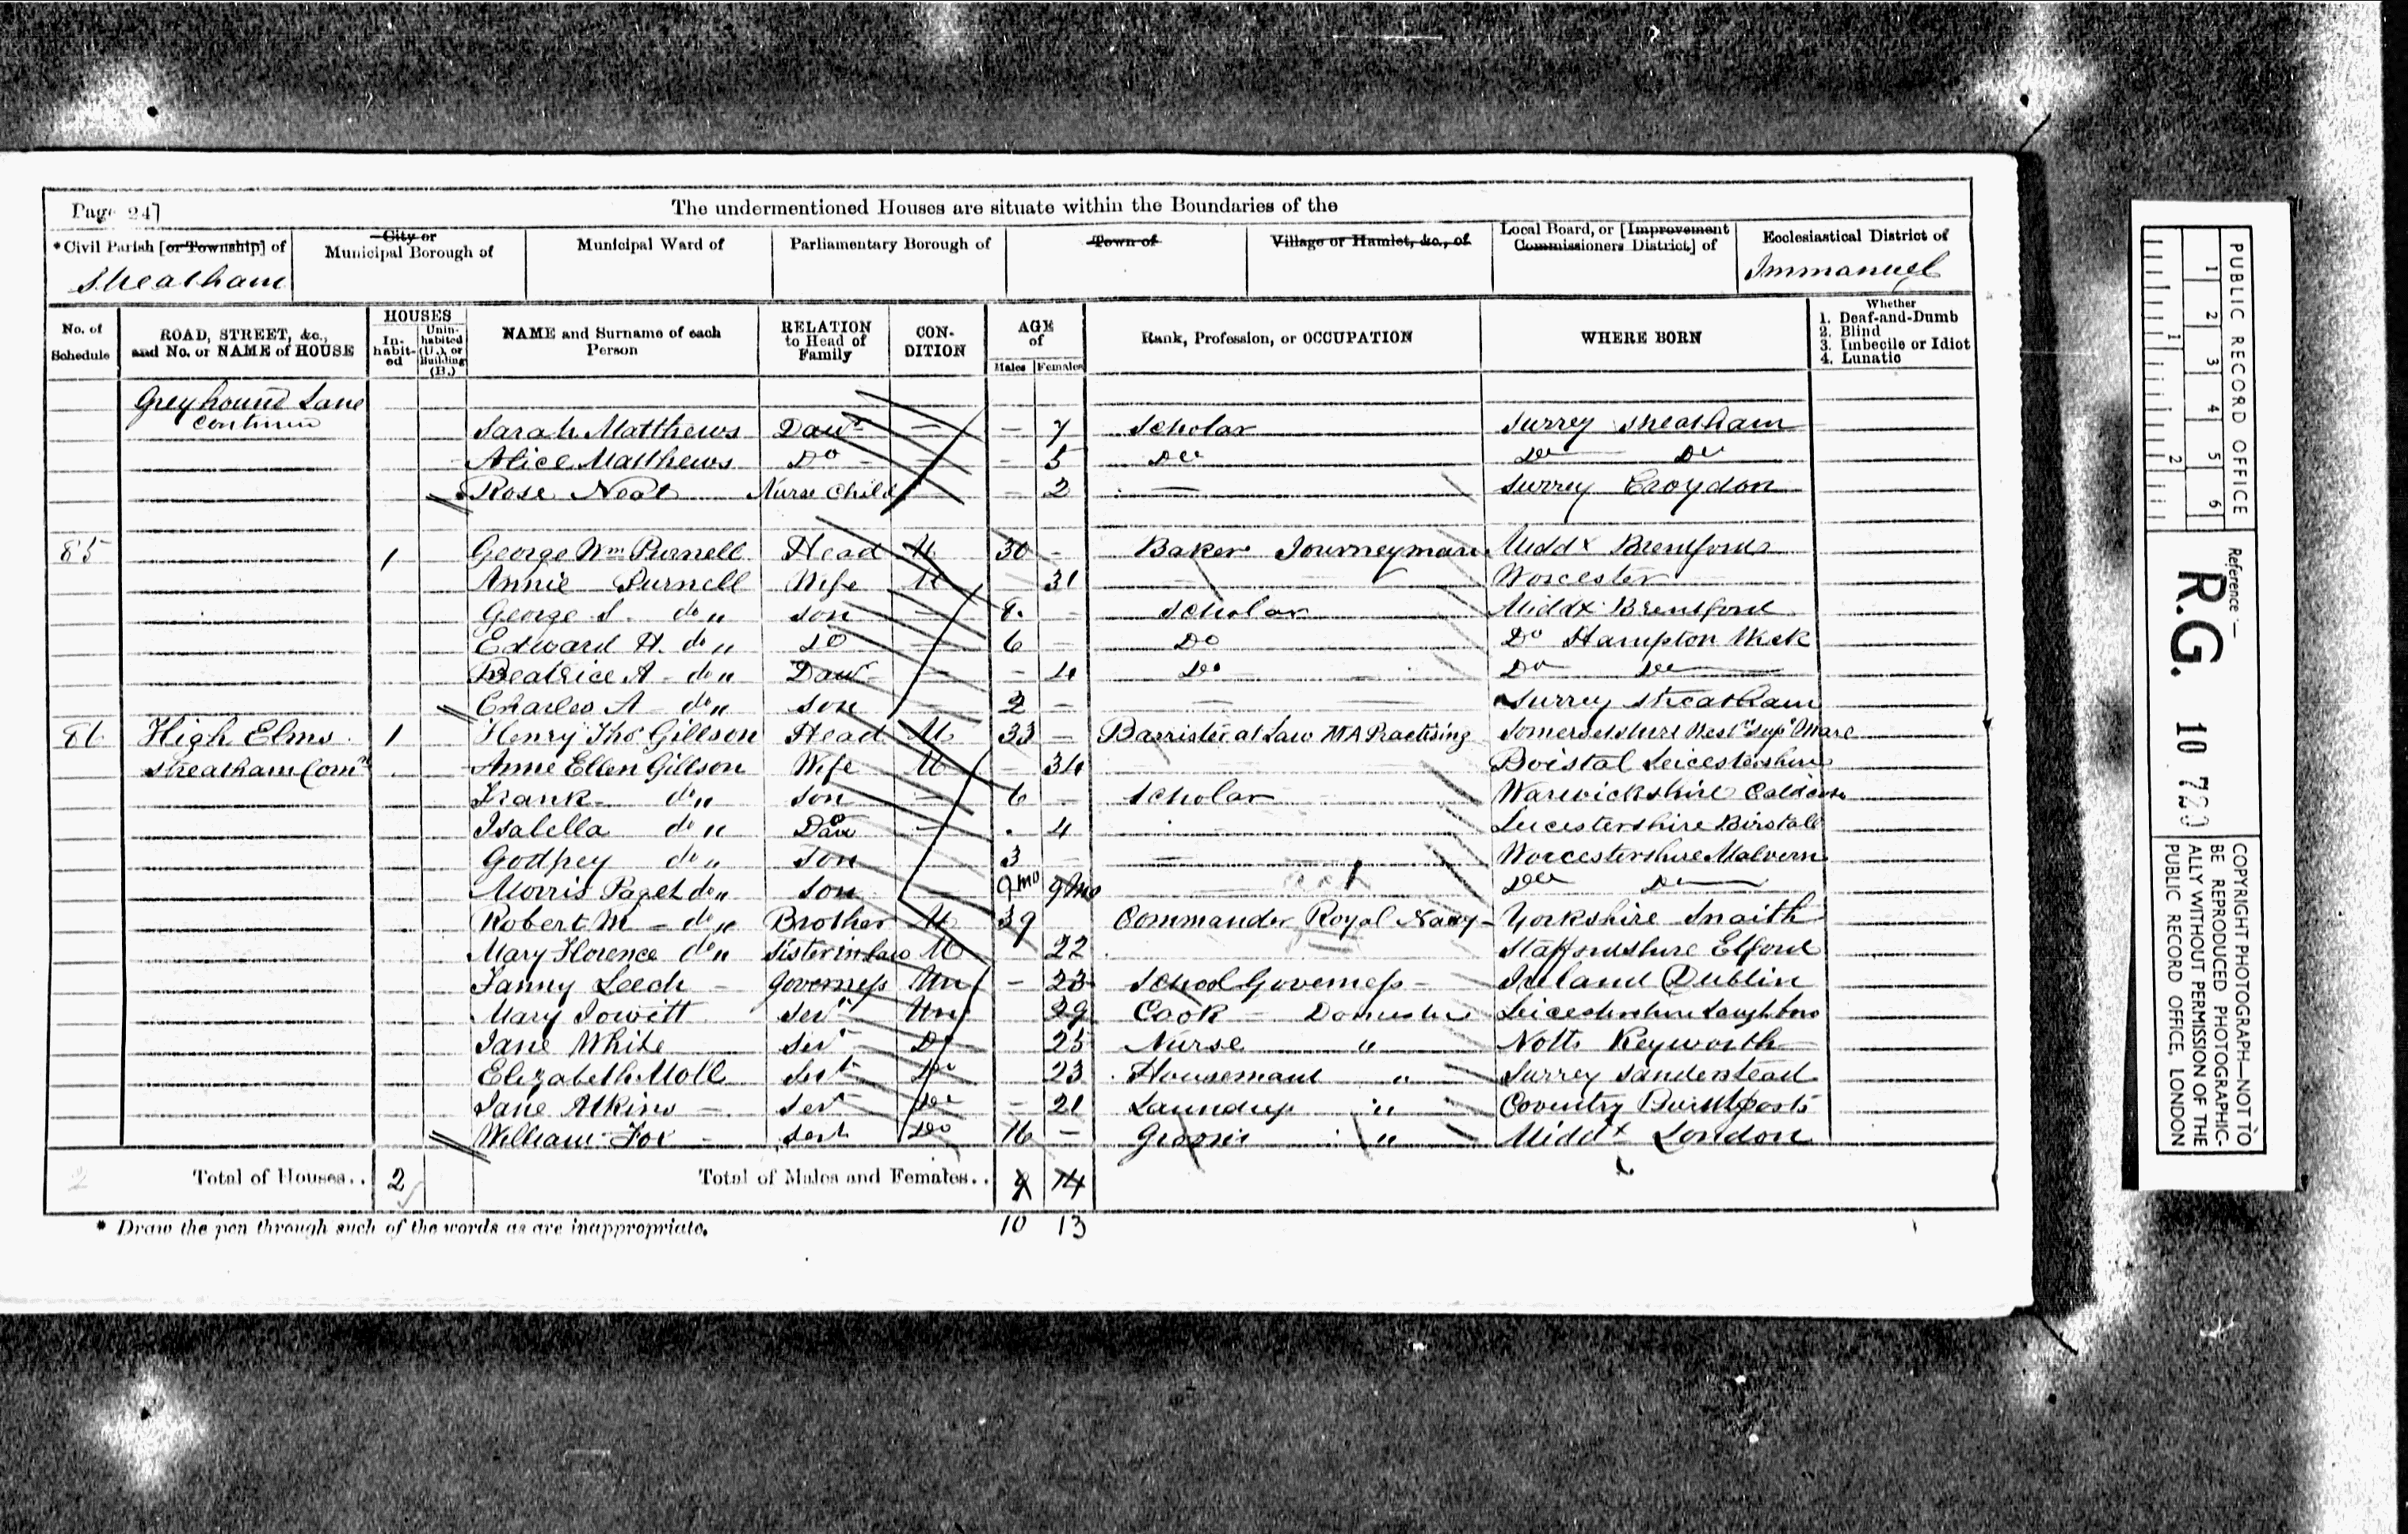 Page 24]
The undermentioned Houses are situate within the Boundaries of the
*Civil Parish [or Township] of
City or Municipal Borough of
Municipal Ward of
Parliamentary Borough of
Town of
Village or Hamlet, &c., of
Local Board, or [Improvement Commissioners District] of
Ecclesiastical District of
Streatham
Immanuel
No. of Schedule
ROAD, STREET, &c., and No. or NAME of HOUSE
HOUSES
In-habit-ed
Unin-habited (U.), or Building (B.)
NAME and Surname of each Person
RELATION to Head of Family
CON-DITION
AGE of
Males
Females
Rank, Profession, or OCCUPATION
WHERE BORN
Whether
1. Deaf-and-Dumb
2. Blind
3. Imbecile or Idiot
4. Lunatic
Greyhound Lane
Sarah Matthews Daur — — 7 Scholar Surrey Streatham
Alice Matthews Do — 5 Do Do Do
Rose Neal Nurse Child — 2 — Surrey Croydon
85 1 George Wm Purnell Head M 30 - Baker Journeyman Middx Brentford
Annie Purnell Wife M 31 Worcester
George S. do " Son — 8 — Scholar Middx Brentford
Edward H. do " Do — 6 — Do Do Hampton Wick
Beatrice A do " Daur — — 4 Do Do Do
Charles A do " Son — 2 — Surrey Streatham
86 High Elms 1 Henry Thos Gillson Head M 33 — Barrister at Law MA Practising Somersetshire Westn Sup Mare
Streatham Comn Annie Ellen Gillson Wife M 34 Boistal Leicestershire
Frank do " Son — 6 — Scholar Warwickshire
Isabella do " Daur — 4 Leicestershire Birstall
Godfrey do " Son 3 — Worcestershire Malvern
Morris Paget do " Son 9mo 9mo Do Do
Robert M do " Brother M 39 Commander Royal Navy Yorkshire Snaith
Mary Florence do " Sister in Law M 22 Staffordshire Elford
Fanny Leech Governess Un — 23 School Governess Ireland Dublin
Mary Jowitt Servt Un 29 Cook Domestic Leicestershire Loughboro
Jane White Servt Do 25 Nurse " Notts Keyworth
Elizabeth Moll Servt Do 23 Housemaid " Surrey Sanderstead
Jane Atkins Servt Do — 21 Laundrys " Coventry
William Fox Servt Do 16 — Groom " Middx London
Total of Houses.. 2
Total of Males and Females.. 9 14
* Draw the pen through such of the words as are inappropriate.
10 13
PUBLIC RECORD OFFICE
1 2 3 4 5 6
1 2
Reference :—
R.G. 10 729
COPYRIGHT PHOTOGRAPH—NOT TO
BE REPRODUCED PHOTOGRAPHIC-
ALLY WITHOUT PERMISSION OF THE
PUBLIC RECORD OFFICE, LONDON